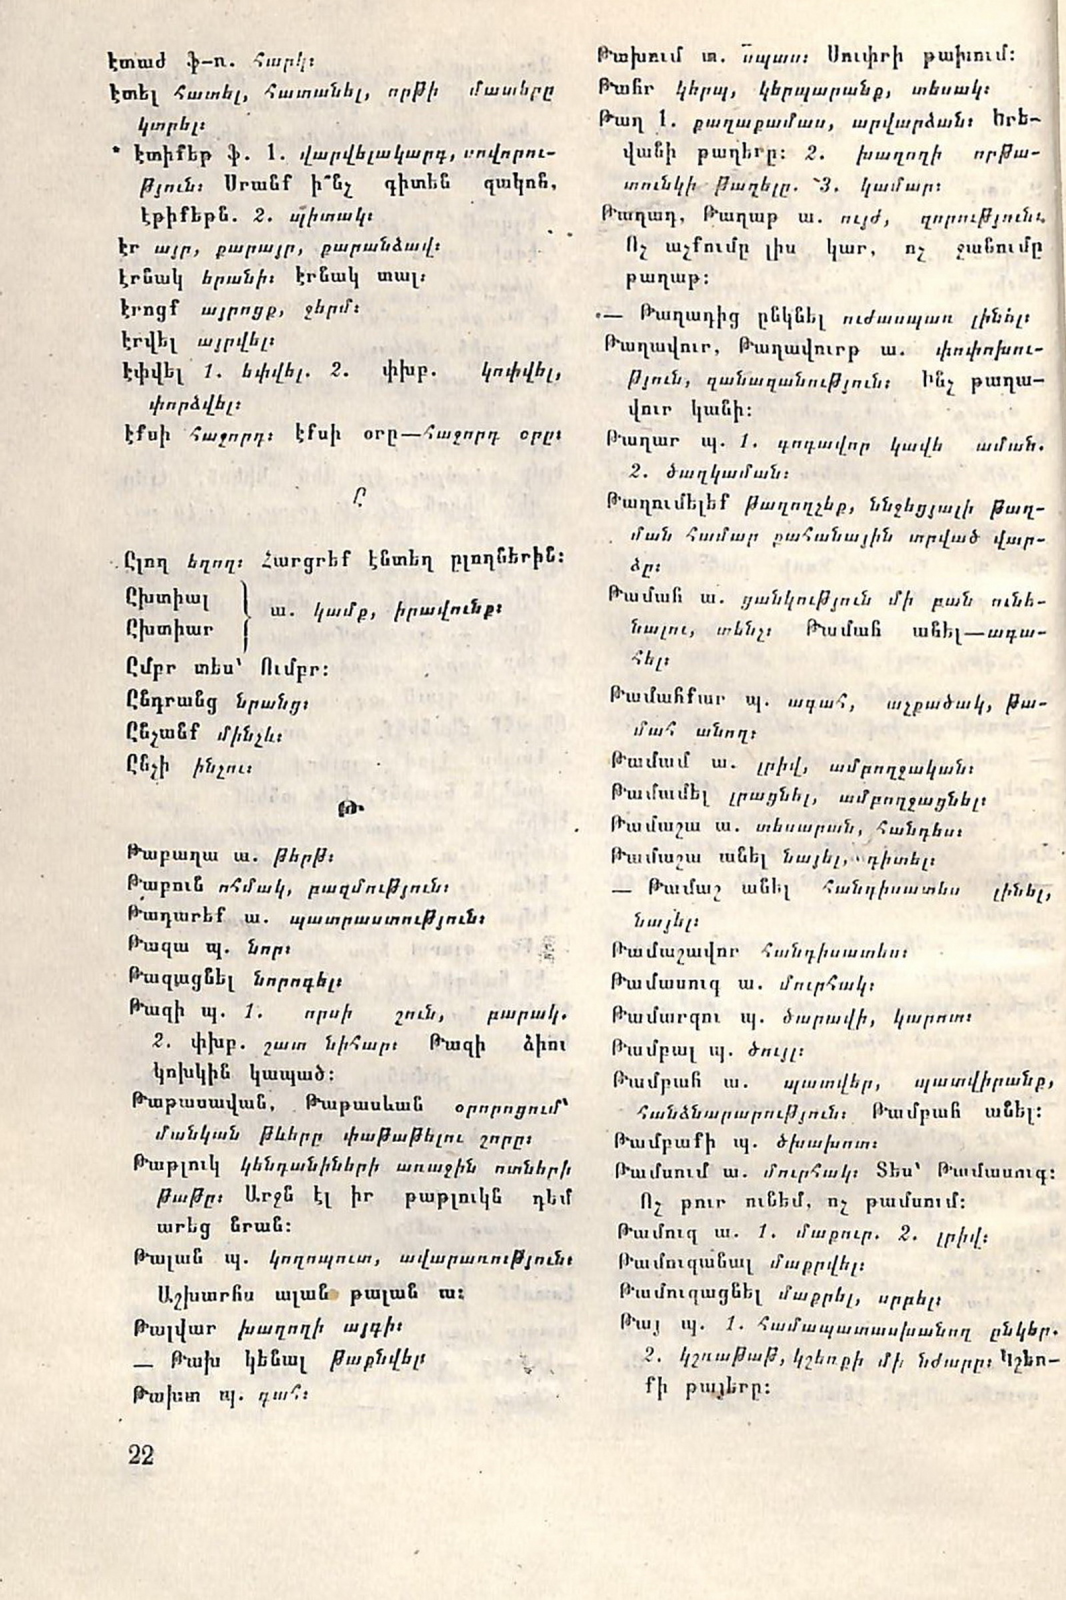 Էտաժ ֆ-ռ. հարկ։
Էտել հատել, հատանել, որթի մատերը
կտրել։
Էտիքեթ ֆ. 1. վարվելակարգ, սովորու-
թյուն։ Սրանք ի՞նչ գիտեն զակոն,
էթիքեթն. 2. պիտակ։
Էր այր, քարայր, քարանձավ։
Էրնակ երանի։ Էրնակ տալ։
Էրոցք այրոցք, ջերմ։
Էրվել այրվել։
Էփվել 1. եփվել. 2. փխբ. կոփվել,
փորձվել։
Էքսի հաջորդ։ Էքսի օրը—հաջորդ օրը։
Ը
Ըլող եղող։ Հարցրեք էնտեղ ըլողներին։
Ըխտիալ
Ըխտիար
ա. կամք, իրավունք։
Ըմբր տես՝ Ումբր։
Ընդրանց նրանց։
Ընչանք մինչև։
Ընչի ինչու։
Թ
Թաբաղա ա. թերթ։
Թաբուն ոհմակ, բազմություն։
Թադարեք ա. պատրաստություն։
Թազա պ. նոր։
Թազացնել նորոգել։
Թազի պ. 1. որսի շուն, բարակ.
2. փխբ. շատ նիհար։ Թազի ձիու
կոխկին կապած։
Թաթասավան, Թաթասևան օրորոցում՝
մանկան թևերը փաթաթելու շորը։
Թաթլուկ կենդանիների առաջին ոտների
թաթը։ Արջն էլ իր թաթլուկն դեմ
արեց նրան։
Թալան պ. կողոպուտ, ավարառություն։
Աշխարհս ալան թալան ա։
Թալվար խաղողի այգի։
— Թախ կենալ թաքնվել։
Թախտ պ. գահ։
Թախում տ. սպաս։ Սուփրի թախում։
Թահր կերպ, կերպարանք, տեսակ։
Թաղ 1. քաղաքամաս, արվարձան։ Երե-
վանի թաղերը։ 2. խաղողի որթա-
տունկի թաղելը. 3. կամար։
Թաղադ, Թաղաթ ա. ույժ, զորություն։
Ոչ աչքումը լիս կար, ոչ ջանումը
թաղաթ։
— Թաղադից ընկնել ուժասպառ լինել։
Թաղավուր, Թաղավուրթ ա. փոփոխու-
թյուն, զանազանություն։ Ինչ թաղա-
վուր կանի։
Թաղար պ. 1. գոգավոր կավե աման.
2. ծաղկաման։
Թաղումելեք թաղողչեք, ննջեցյալի թաղ-
ման համար քահանային տրված վար-
ձը։
Թամահ ա. ցանկություն մի բան ունե-
նալու, տենչ։ Թամահ անել—ագա-
հել։
Թամահքար պ. ագահ, աչքածակ, թա-
մահ անող։
Թամամ ա. լրիվ, ամբողջական։
Թամամել լրացնել, ամբողջացնել։
Թամաշա ա. տեսարան, հանդես։
Թամաշա անել նայել, դիտել։
— Թամաշ անել հանդիսատես լինել,
նայել։
Թամաշավոր հանդիսատես։
Թամասուգ ա. մուրհակ։
Թամարզու պ. ծարավի, կարոտ։
Թամբալ պ. ծույլ։
Թամբահ ա. պատվեր, պատվիրանք,
հանձնարարություն։ Թամբահ անել։
Թամբաքի պ. ծխախոտ։
Թամսում ա. մուրհակ։ Տես՝ Թամասուգ։
Ոչ բուր ունեմ, ոչ թամսում։
Թամուզ ա. 1. մաքուր. 2. լրիվ։
Թամուզանալ մաքրվել։
Թամուզացնել մաքրել, սրբել։
Թայ պ. 1. համապատասխանող ընկեր.
2. կշռաթաթ, կշեռքի մի նժարը։ Կշեռ-
քի թայերը։
22